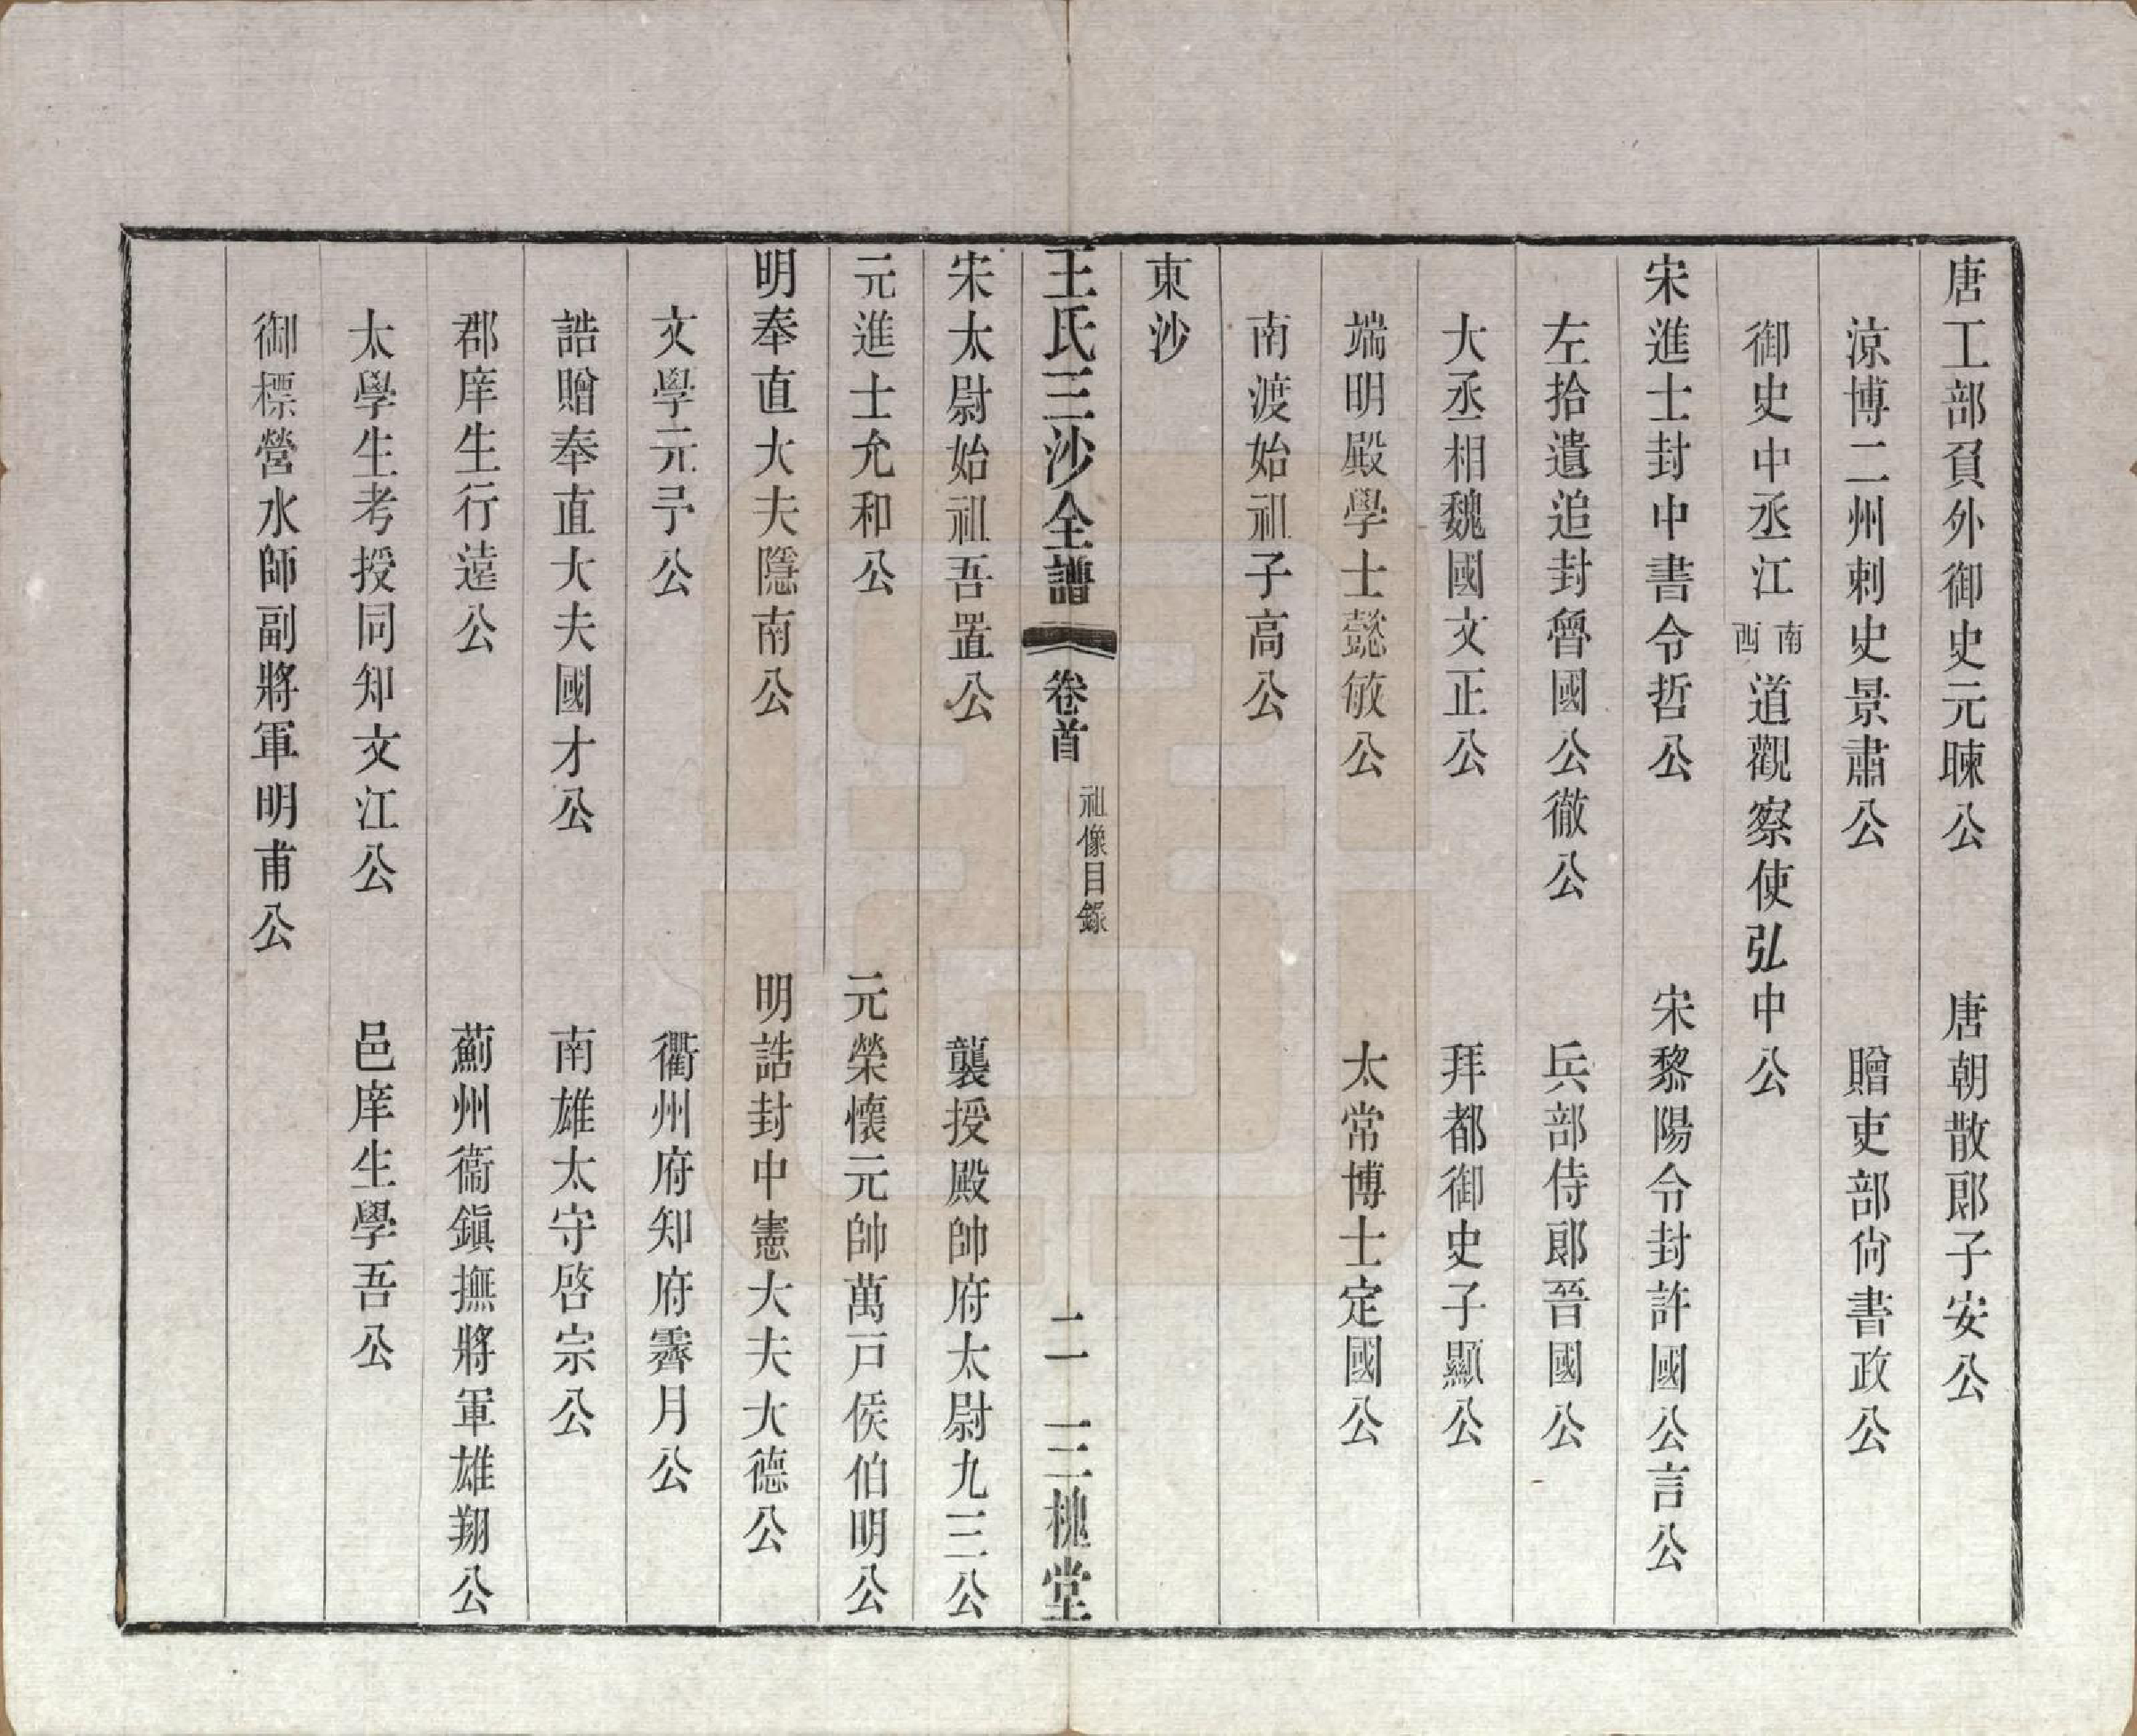 唐工部貟外御史元暕公　唐朝散郎子安公
涼博二州刺史景肅公　贈吏部尙書政公
御史中丞江南西道觀察使弘中公
宋進士封中書令哲公　宋黎陽令封許國公言公
左拾遺追封魯國公徹公　兵部侍郎晉國公
大丞相魏國文正公　拜都御史子顯公
端明殿學士懿敏公　太常博士定國公
南渡始祖子高公
東沙
王氏三沙全譜　卷首　祖像目錄　二　三槐堂
宋太尉始祖吾置公　襲授殿帥府太尉九三公
元進士允和公　元榮懷元帥萬戸侯伯明公
明奉直大夫隱南公　明誥封中憲大夫大德公
文學元予公　衢州府知府霽月公
誥贈奉直大夫國才公　南雄太守啓宗公
郡庠生行遠公　薊州衞鎭撫將軍雄翔公
太學生考授同知文江公　邑庠生學吾公
御標營水師副將軍明甫公